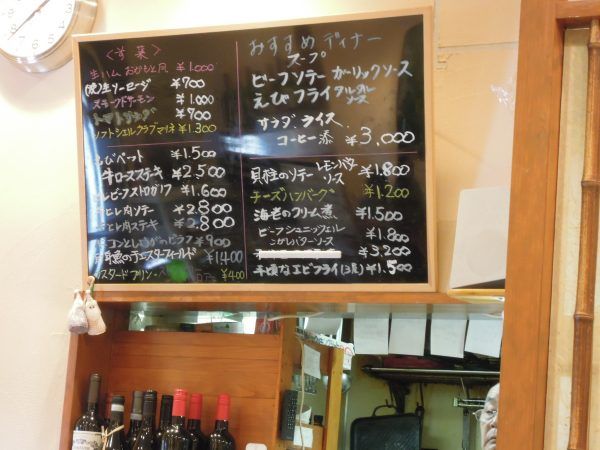 〈前菜〉
生ハム おかもと風 ¥1.000
生ソーセージ ¥700
スモークドサーモン ¥1.000
トマトサラダ ¥700
ソフトシェルクラブマリネ ¥1.300
¥1.500
牛ロースステキ ¥2500
ビーフストロガノフ ¥1.600
ヒレ肉ソテー ¥2.800
ヒレ肉ステキ ¥2.800
ピラフ ¥900
¥1400
カスタードプリン ¥400
おすすめディナー
スープ
ビーフソテー ガーリックソース
えびフライ タルタルソース
サラダ、ライス
コーヒー添 ¥3,000
貝柱のソテー レモンバターソース ¥1.800
チーズハンバーグ ¥1.200
海老のクリーム煮 ¥1.500
ビーフシュニッツェル
こがしバターソース ¥1.800
¥3,200
手頃なエビフライ(3尾) ¥1.500